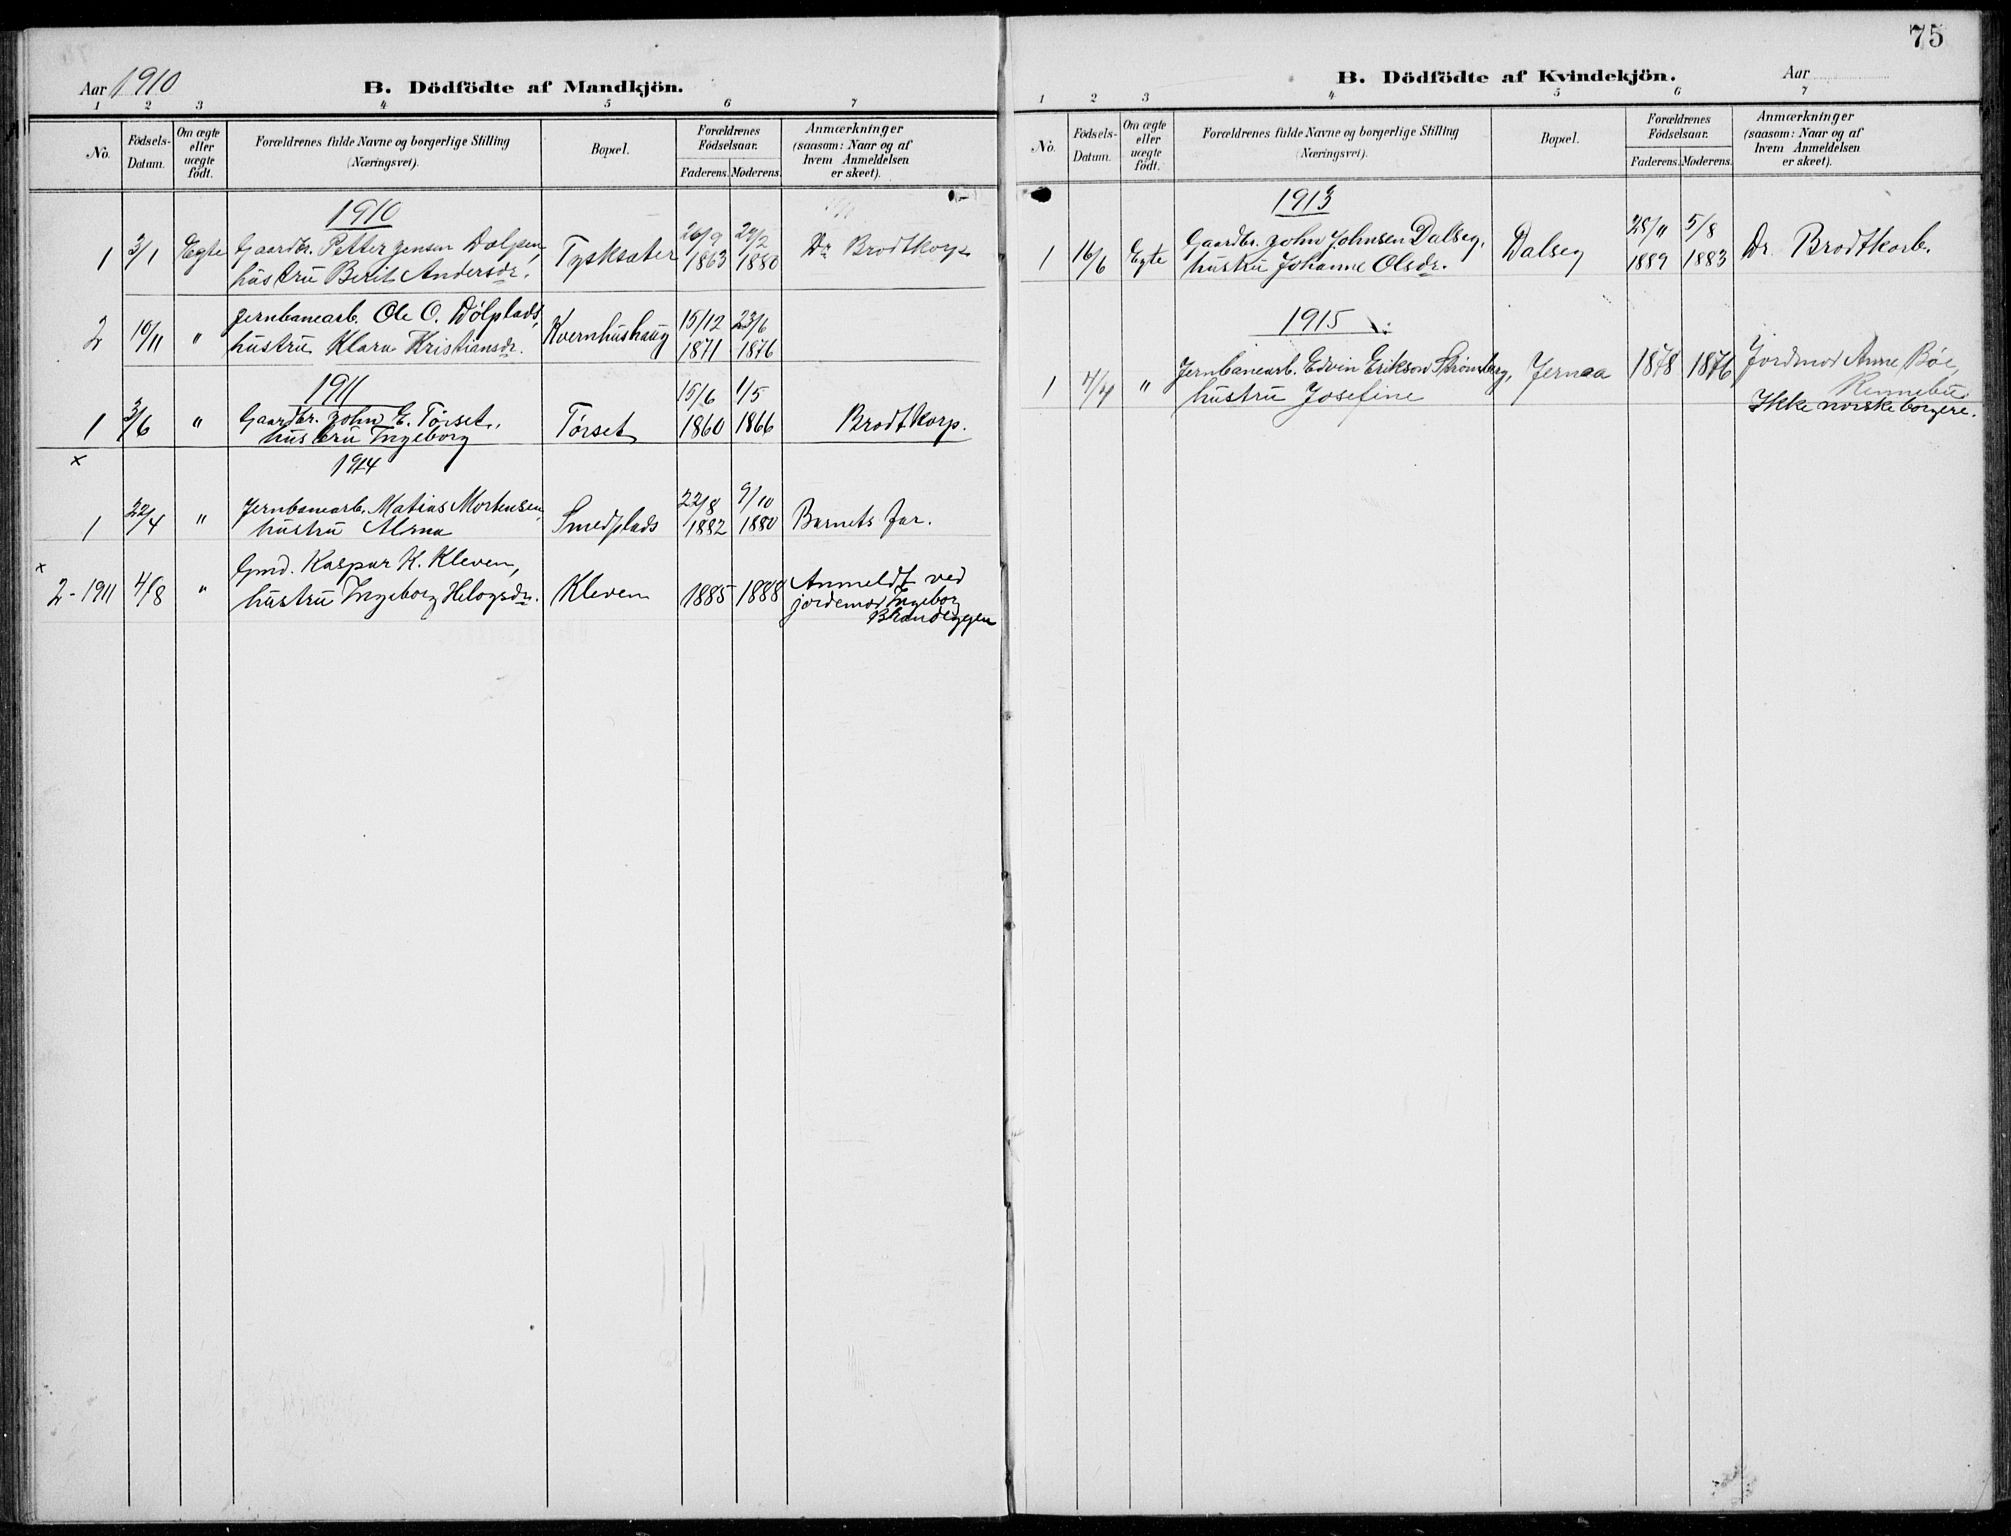 75
Aar 1910
B. Dödfödte af Mandkjön.
1 2 3 4 5 6 7
No. Födsels-Datum. Om ægte eller uægte födt. Forældrenes fulde Navne og borgerlige Stilling (Næringsvei). Bopæl. Forældrenes Födselsaar. Faderens. Moderens. Anmærkninger (saasom: Naar og af hvem Anmeldelsen er skeet).
1910
1 3/1 Egte Gaardbr. Petter Jensen Dælpen, Tysksæter 26/9 29/2 Dr Brodtkorp
hustru Berit Andersdr. 1863 1880
2 10/11 " Jernbanearb. Ole O. Dölplads, Kvernhushaug 15/12 23/6
hustru Klara Kristiansdr. 1871 1876
1911
1 3/6 " Gaardbr. John E. Törset, Törset 15/6 1/5 Brodtkorp.
hustru Ingeborg 1860 1866
x
1914
1 22/4 " Jernbanearb. Matias Mortensen, Smedplads 22/8 9/10 Barnets far.
hustru Alma 1882 1880
x
2 - 1911 4/8 " Gmd. Kaspar K. Kleven, Kleven 1885 1888 Anmeldt ved
hustru Ingeborg Helogsdr. jordemor Ingeborg
Brandeggen
B. Dödfödte af Kvindekjön.
Aar
1 2 3 4 5 6 7
No. Födsels-Datum. Om ægte eller uægte födt. Forældrenes fulde Navne og borgerlige Stilling (Næringsvei). Bopæl. Forældrenes Födselsaar. Faderens. Moderens. Anmærkninger (saasom: Naar og af hvem Anmeldelsen er skeet).
1913
1 16/6 Egte Gaardbr. John Johnsen Dalseg, Dalseg 25/11 5/8 Dr. Brodtkorb.
hustru Johanne Olsdr. 1889 1883
1915
1 4/4 " Jernbanearb. Edvin Erikson Strömberg, Jernaa 1878 1876 Jordmor Anne Böe,
hustru Josefine Rennebu
Ikke norske borgere.